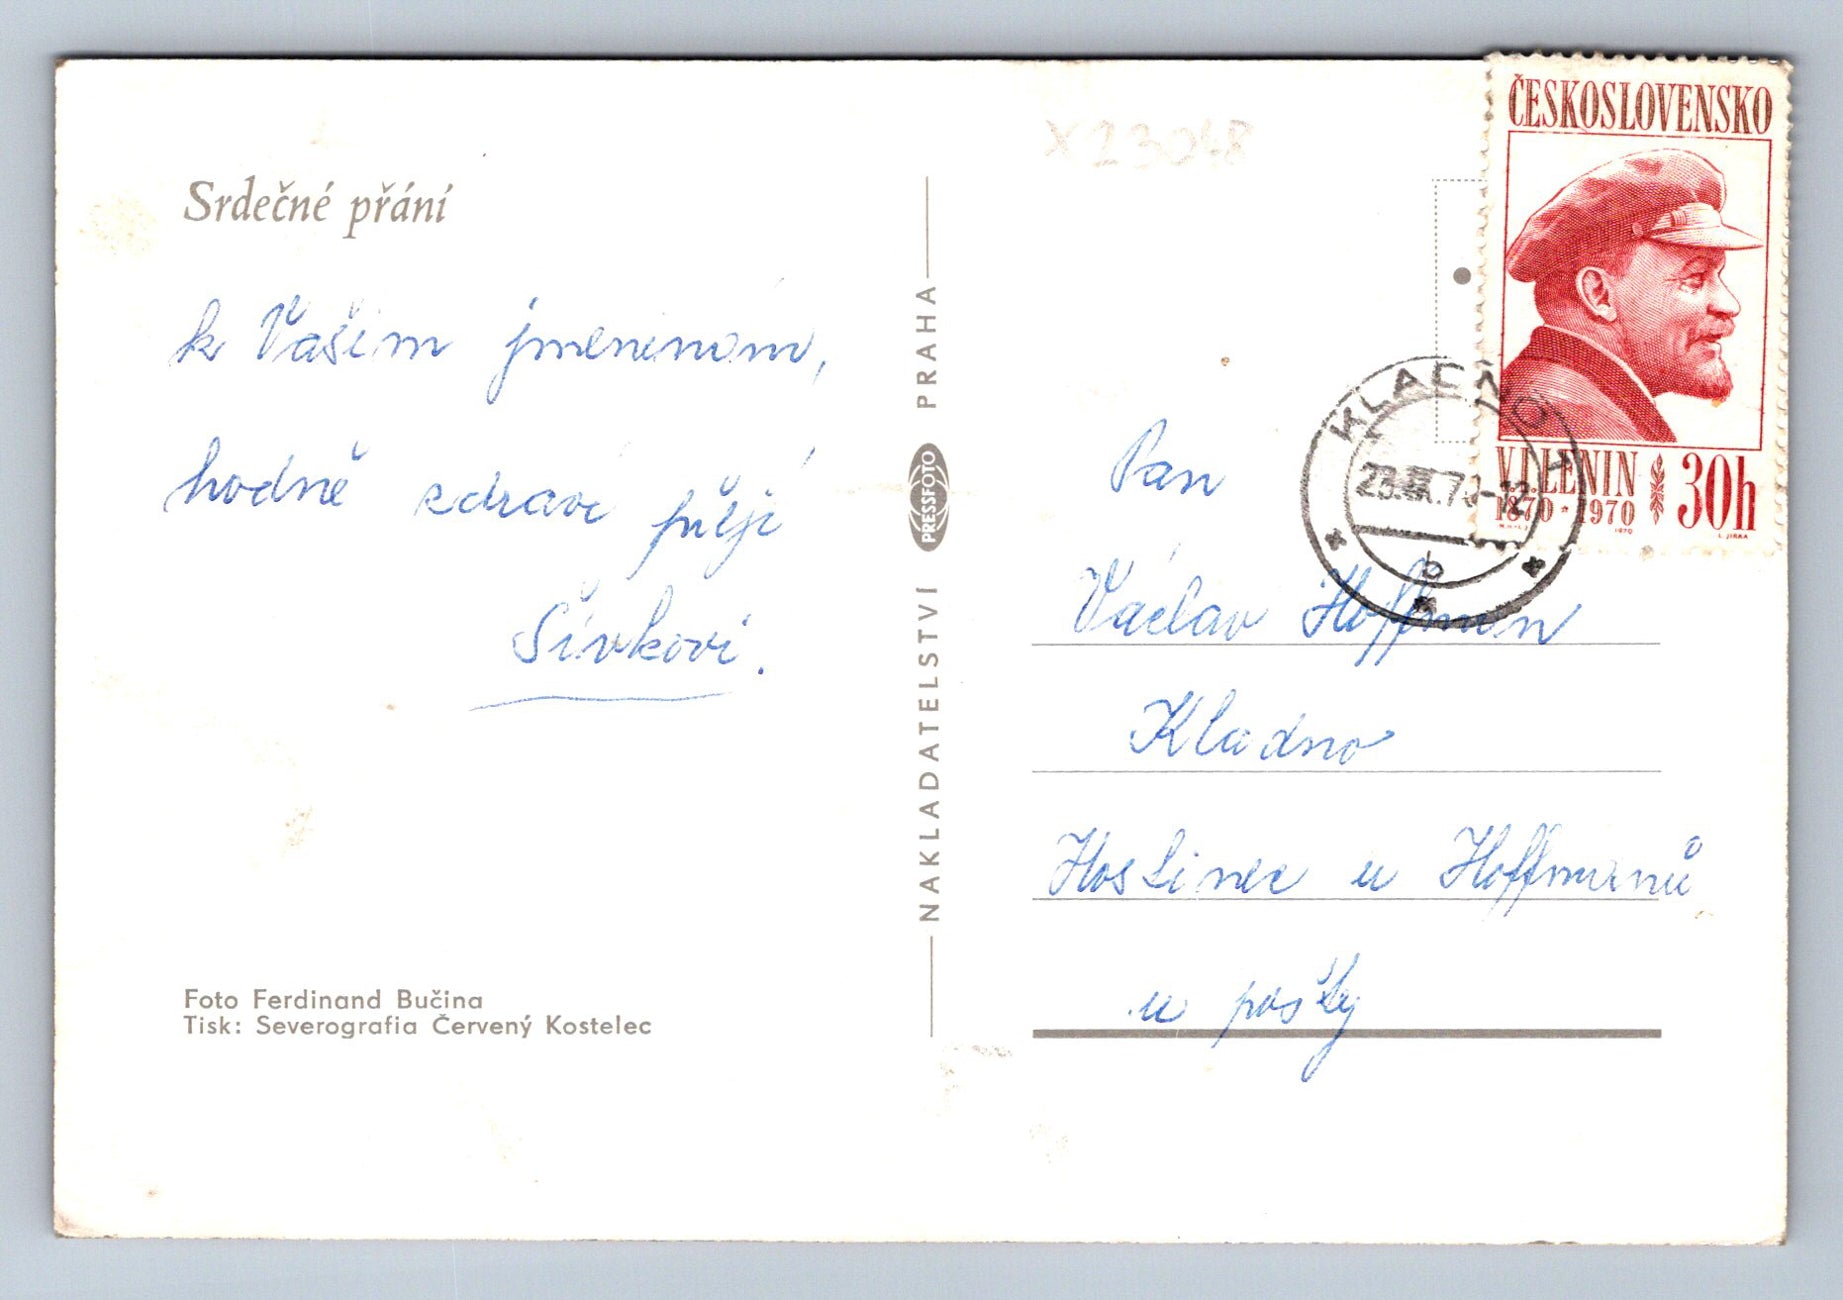 Srdečné přání
k Vašim jmeninám,
hodně zdraví přejí
Šívkovi.
Foto Ferdinand Bučina
Tisk: Severografia Červený Kostelec
NAKLADATELSTVÍ PRESSFOTO PRAHA
X 23048
ČESKOSLOVENSKO
V.I. LENIN 30h
1870 * 1970
1970
I. JIRKA
KLADNO 1
b
Pan
Václav Hoffman
Kladno
Hostinec u Hoffmanů
u pošty